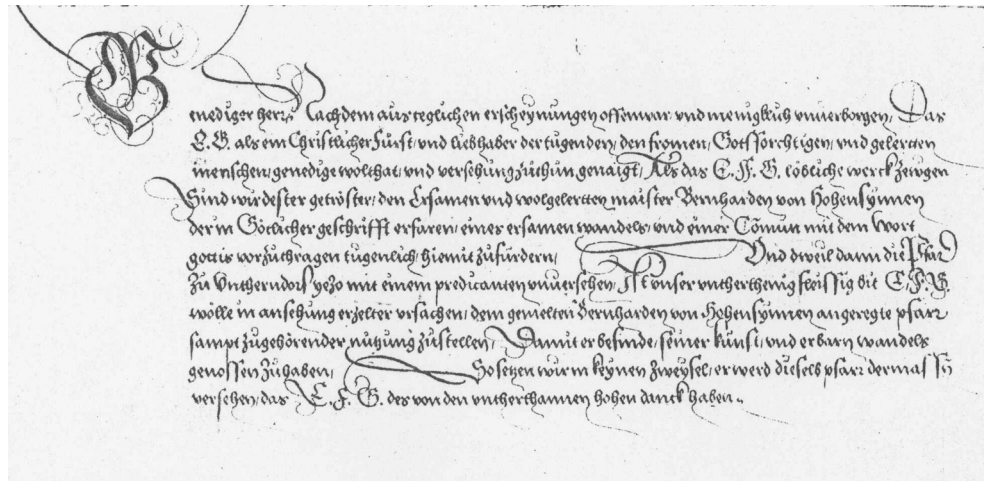 Genediger herr, Nachdem aus teglichen erscheynungen offenwar und menigklich unverborgen, Das
E. G. als ein Christlicher Fürst, und liebhaber der tugenden, den fromen, Gotsforchtigen, und gelertten
menschen, genedige wolthat, und versehung zuthun genaigt, Als das E. F. G. löbliche werck zewgen
Sind wir dester getröster, den Ersamen und wolgelertten maister Bernharden von Hohensynnen
der in Götlicher geschrifft erfaren, eines ersamen wandels, und einer Comun mit dem Wort
gottis vorzuthragen tugenlich, hiemit zufürdern, Und dweil dann die Pfar
zu Untherndorf yezo mit einem predicanten unversehen, Ist unser unthertheniig fleissig bit E. F. G.
wölle in ansehung erzelter ursachen, dem gemelten Bernharden von Hohensynnen angeregte pfarr
sampt zugehörender nutzung zustellen, Damit er befinde, seiner kunst, und erbarn wandels
genossen zuhaben, So setzen wir in keynen zweyfel, er werd dieselb pfarr dermassn
versehen, das E. F. G. des von den untherthannen hohen danck haben.